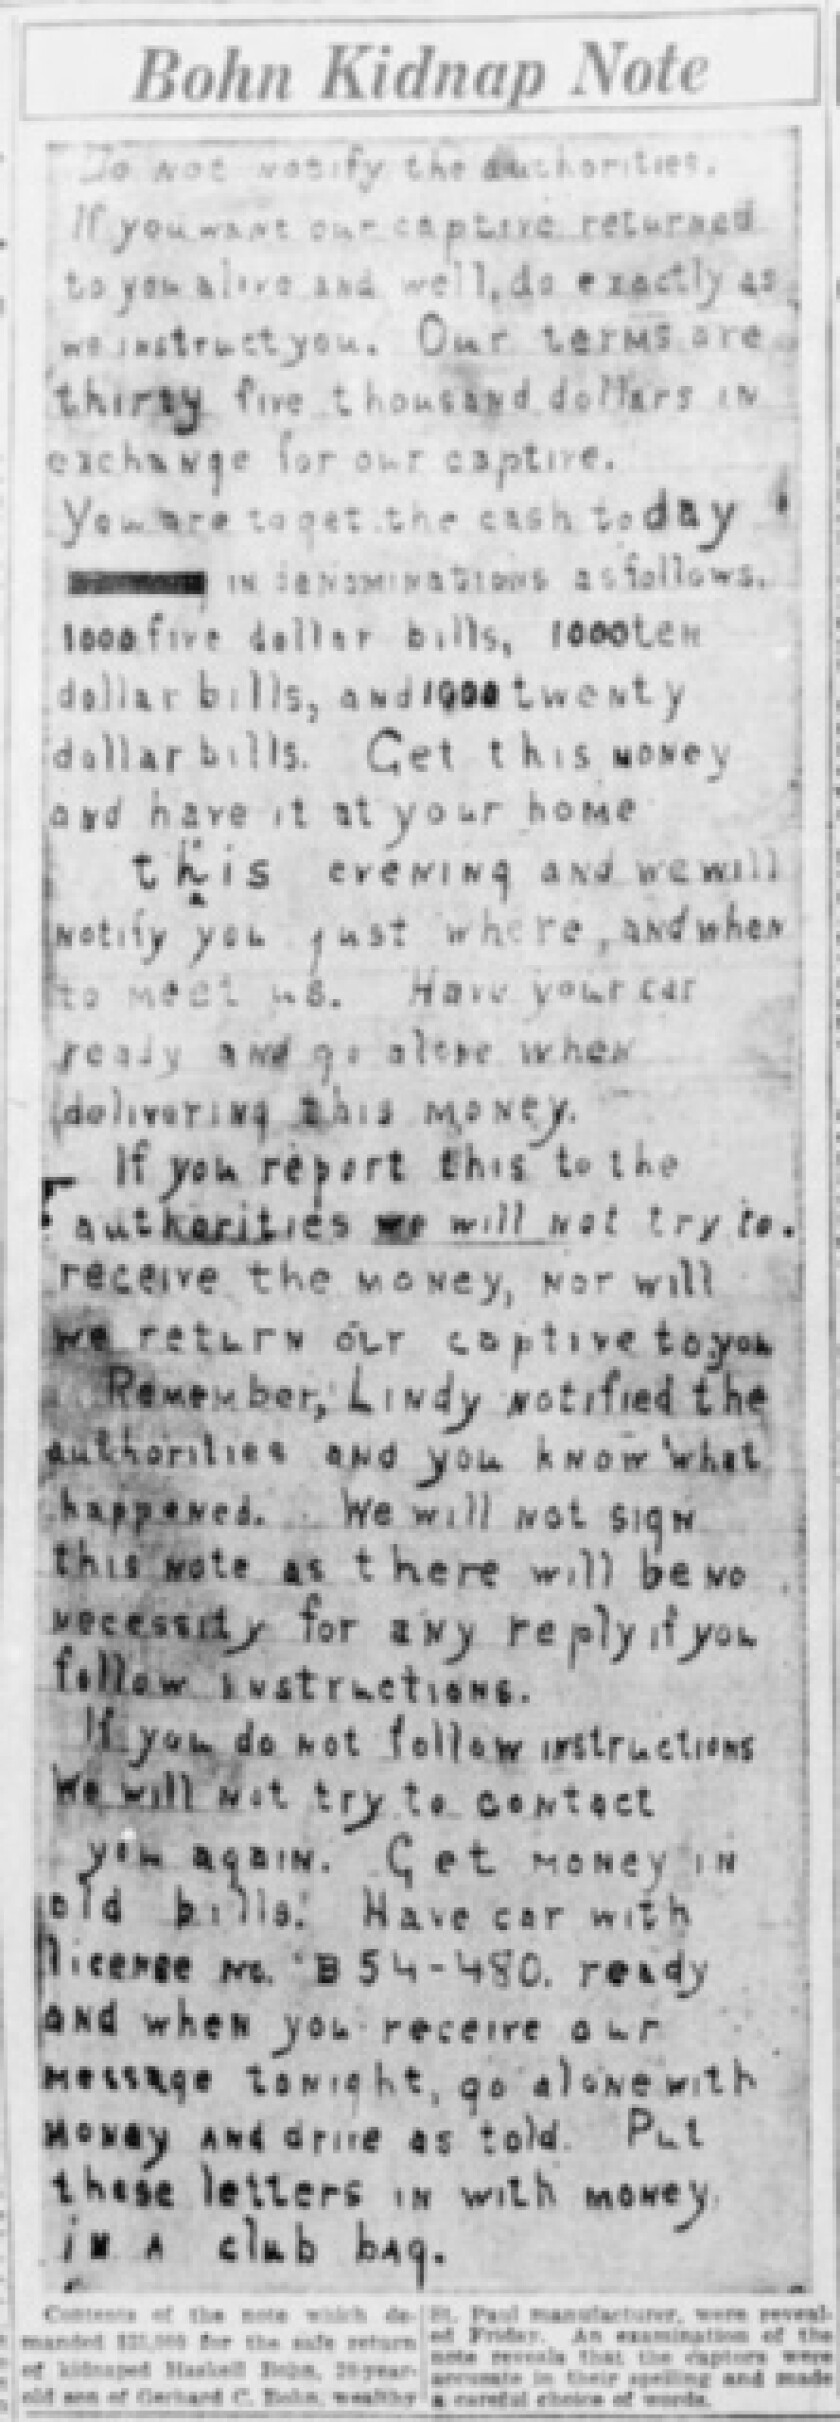 Bohn Kidnap Note
Do not notify the authorities.
If you want our captive returned
to you alive and well, do exactly as
we instruct you. Our terms are
thirty five thousand dollars in
exchange for our captive.
You are to get the cash today
in denominations as follows.
1000 five dollar bills, 1000 ten
dollar bills, and 1000 twenty
dollar bills. Get this money
and have it at your home
this evening and we will
notify you just where, and when
to meet us. Have your car
ready and go alone when
delivering this money.
If you report this to the
authorities we will not try to.
receive the money, nor will
we return our captive to you
Remember, Lindy notified the
authorities and you know what
happened. We will not sign
this note as there will be no
necessity for any reply if you
follow instructions.
If you do not follow instructions
We will not try to contact
you again. Get money in
old bills. Have car with
license no. B54-480. ready
and when you receive our
message tonight, go alone with
money and drive as told. Put
these letters in with money
in a club bag.
Contents of the note which de-
manded $35,000 for the safe return
of kidnaped Haskell Bohn, 20-year-
old son of Gerhard C. Bohn, wealthy
St. Paul manufacturer, were reveal-
ed Friday. An examination of the
note reveals that the captors were
accurate in their spelling and made
a careful choice of words.